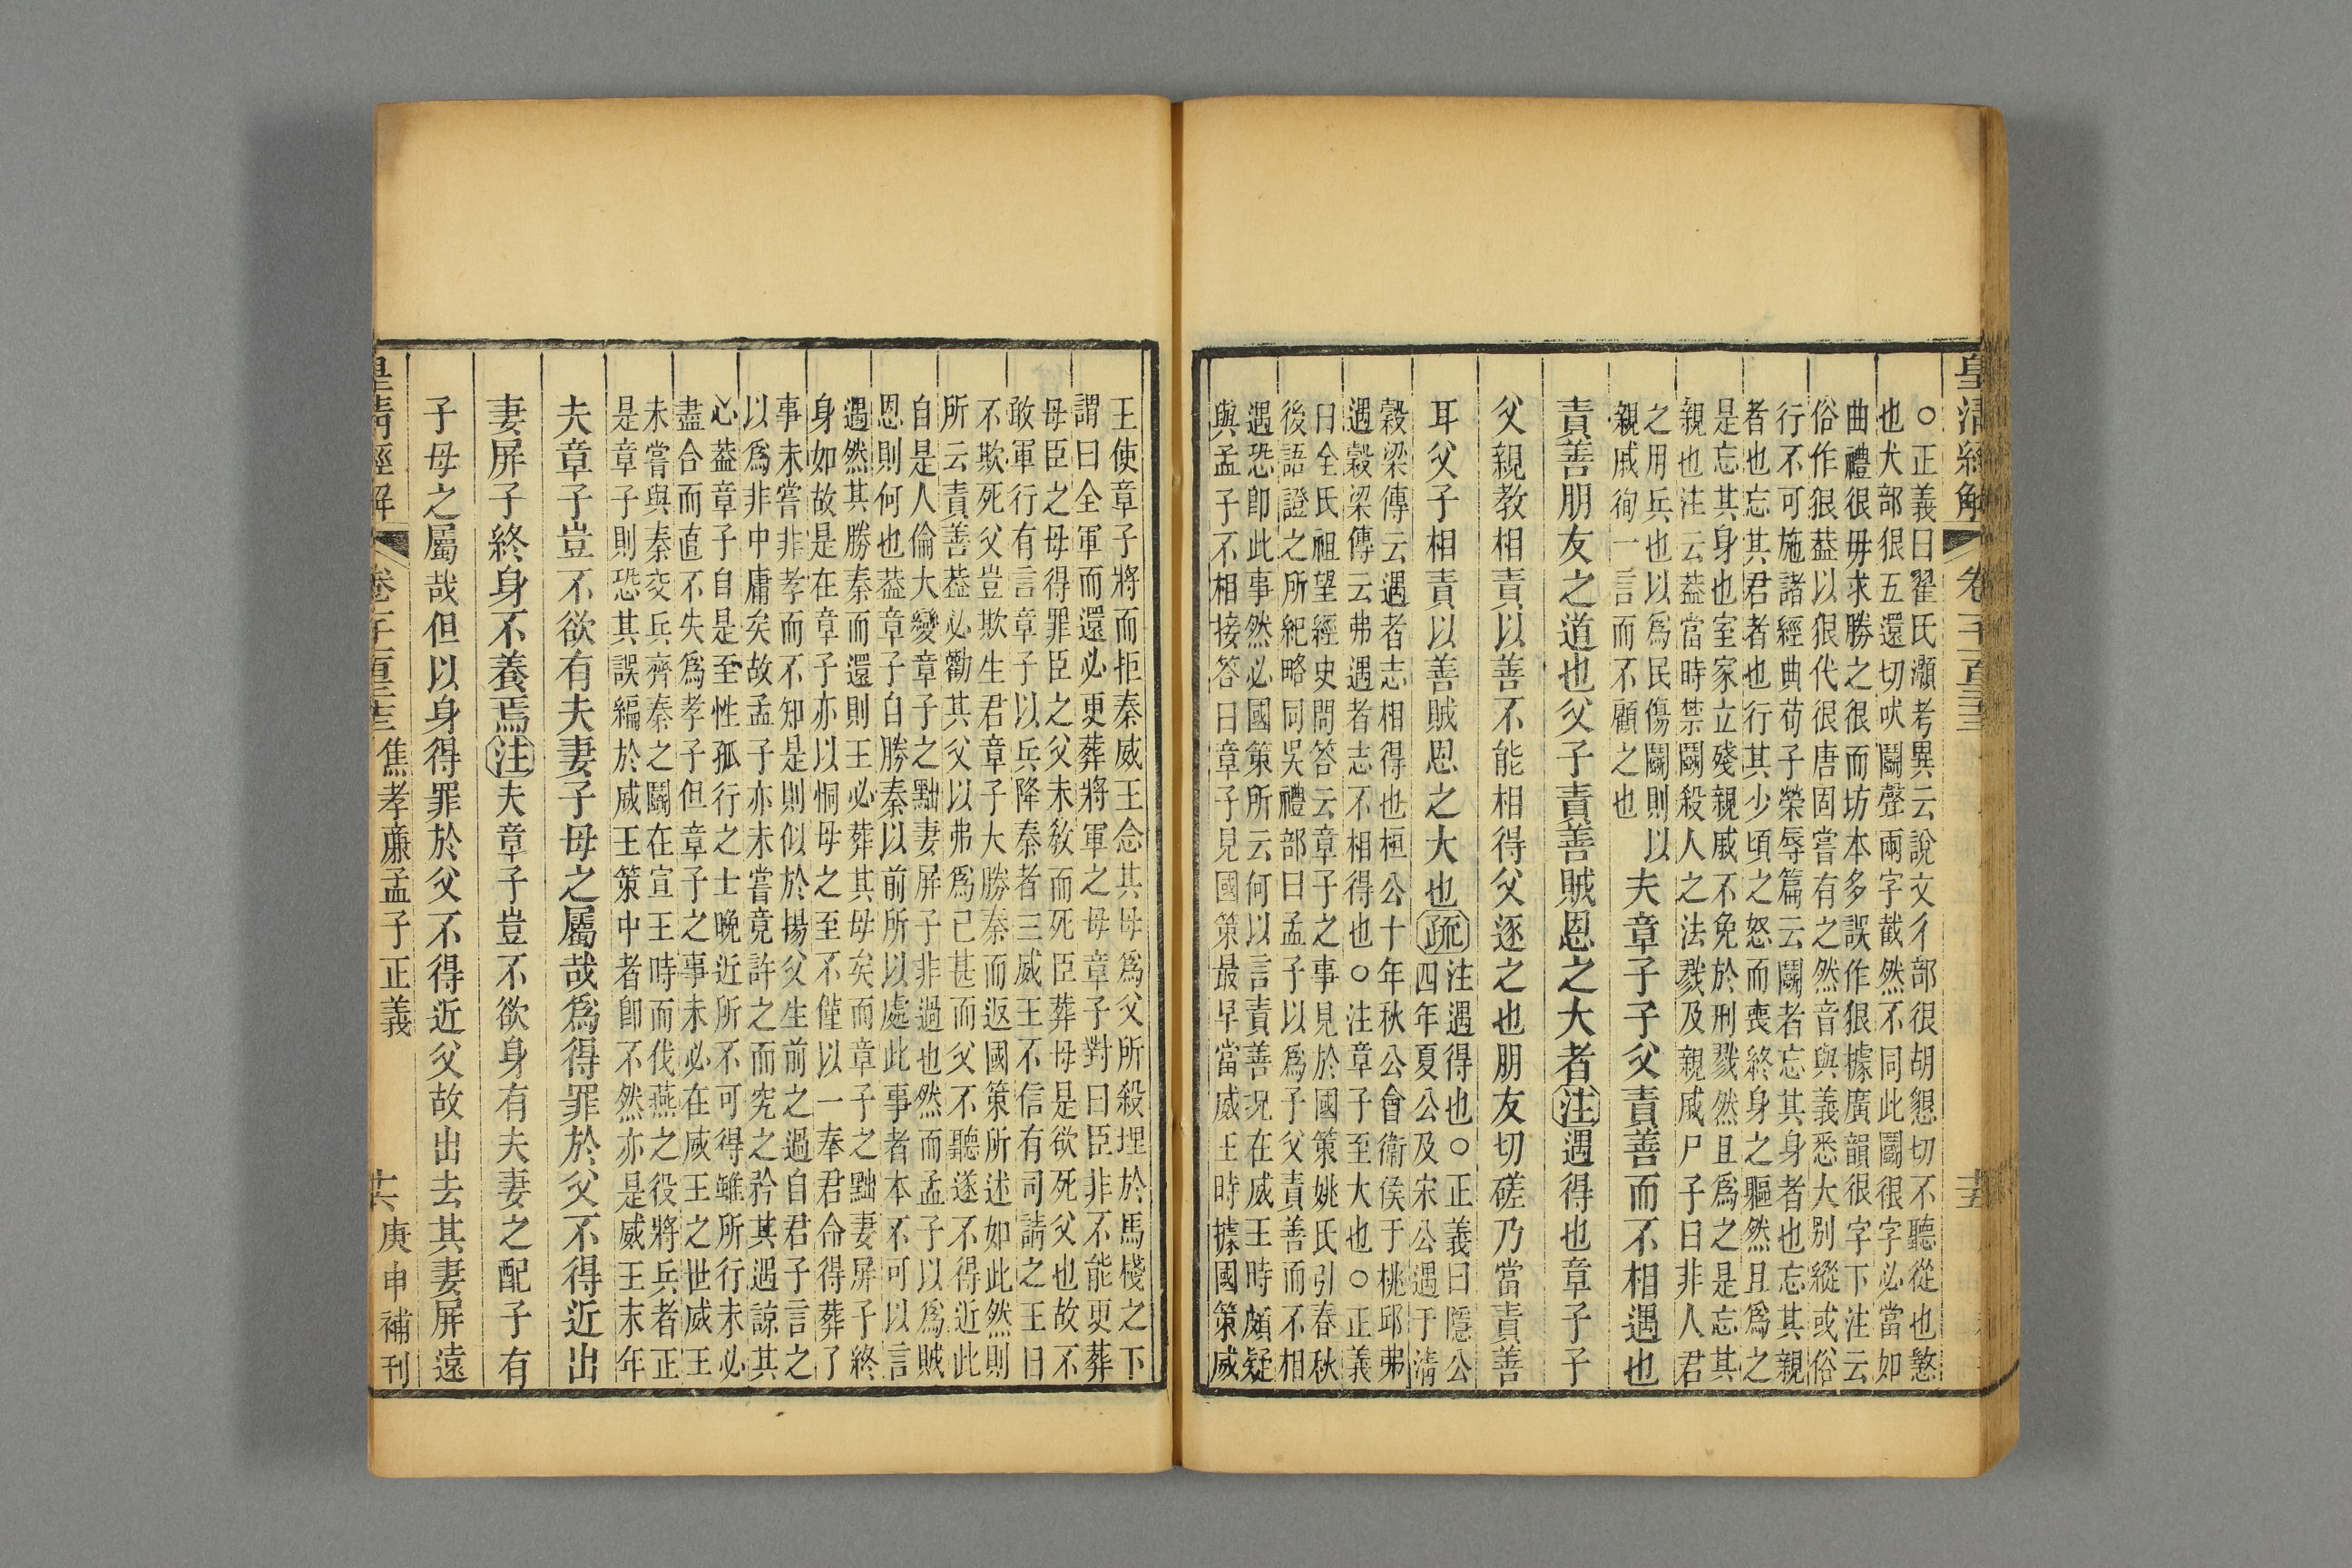 皇清經解 卷一千一百三十三 十五
○正義曰翟氏灝考異云說文彳部很胡懇切不聽從也慜
也犬部狠五還切吠鬭聲兩字截然不同此鬭很字必當如
曲禮很毋求勝之很而坊本多誤作狠據廣韻很字下注云
俗作狠葢以狠代很唐固嘗有之然音與義悉大别縱或俗
行不可施諸經曲荀子榮辱篇云鬭者忘其身者也忘其親
者也忘其君者也行其少頃之怒而喪終身之軀然且爲之
是忘其身也室家立殘親戚不免於刑戮然且爲之是忘其
親也注云葢當時禁鬭殺人之法戮及親戚尸子曰非人君
之用兵也以爲民傷鬭則以
親戚徇一言而不顧之也
夫章子子父責善而不相遇也
責善朋友之道也父子責善賊恩之大者注遇得也章子子
父親教相責以善不能相得父逐之也朋友切磋乃當責善
耳父子相責以善賊恩之大也疏
注遇得也○正義曰隱公
四年夏公及宋公遇于淸
穀梁傳云遇者志相得也桓公十年秋公會衞侯于桃邱弗
遇穀梁傳云弗遇者志不相得也○注章子至大也○正義
曰全氏祖望經史問答云章子之事見於國策姚氏引春秋
後語證之所紀略同吳禮部曰孟子以爲子父責善而不相
遇恐卽此事然必國策所云何以言責善况在威王時頗疑
與孟子不相接答曰章子見國策最早當威王時據國策威
王使章子將而拒秦威王念其母爲父所殺埋於馬棧之下
謂曰全軍而還必更葬將軍之母章子對曰臣非不能更葬
母臣之母得罪臣之父未敎而死臣葬母是欲死父也故不
敢軍行有言章子以兵降秦者三威王不信有司請之王曰
不欺死父豈欺生君章子大勝秦而返國策所述如此然則
所云責善葢必勸其父以弗爲己甚而父不聽遂不得近此
自是人倫大變章子之黜妻屏子非過也然而孟子以爲賊
恩則何也葢章子自勝秦以前所以處此事者本不可以言
遇然其勝秦而還則王必葬其母矣而章子之黜妻屏子終
身如故是在章子亦以恫母之至不僅以一奉君命得葬了
事未嘗非孝而不知是則似於揚父生前之過自君子言之
以爲非中庸矣故孟子亦未嘗竟許之而究之矜其遇諒其
心葢章子自是至性孤行之士晚近所不可得雖所行未必
盡合而直不失爲孝子但章子之事未必在威王之世威王
未嘗與秦交兵齊秦之鬭在宣王時而伐燕之役將兵者正
是章子則恐其誤編於威王策中者卽不然亦是威王末年
夫章子豈不欲有夫妻子母之屬哉爲得罪於父不得近出
妻屏子終身不養焉注夫章子豈不欲身有夫妻之配子有
子母之屬哉但以身得罪於父不得近父故出去其妻屏遠
皇清經解 卷一千一百三十三 焦孝廉孟子正義 十六 庚申補刊